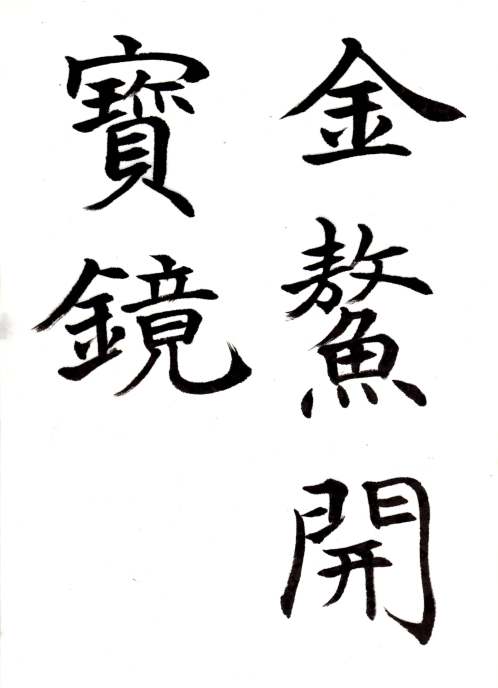 金鰲開
寳鏡